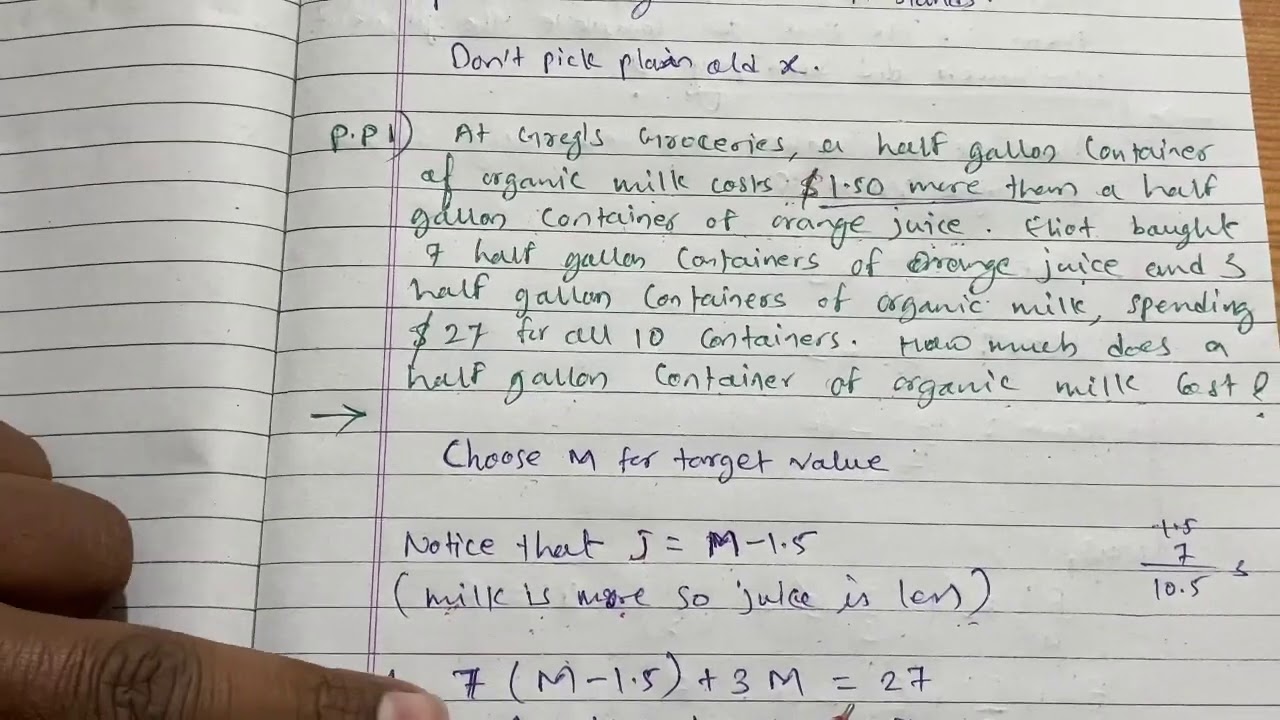 Don't pick plain old x.
P.P 1) At Greg's Groceries, a half gallon container
of organic milk costs $1.50 more than a half
gallon container of orange juice. Eliot bought
7 half gallon containers of orange juice and 3
half gallon containers of organic milk, spending
$27 for all 10 containers. How much does a
half gallon container of organic milk cost?
→
Choose M for target value
Notice that J = M-1.5
1.5
7
10.5
(milk is more so juice is less)
7 (M-1.5) + 3 M = 27